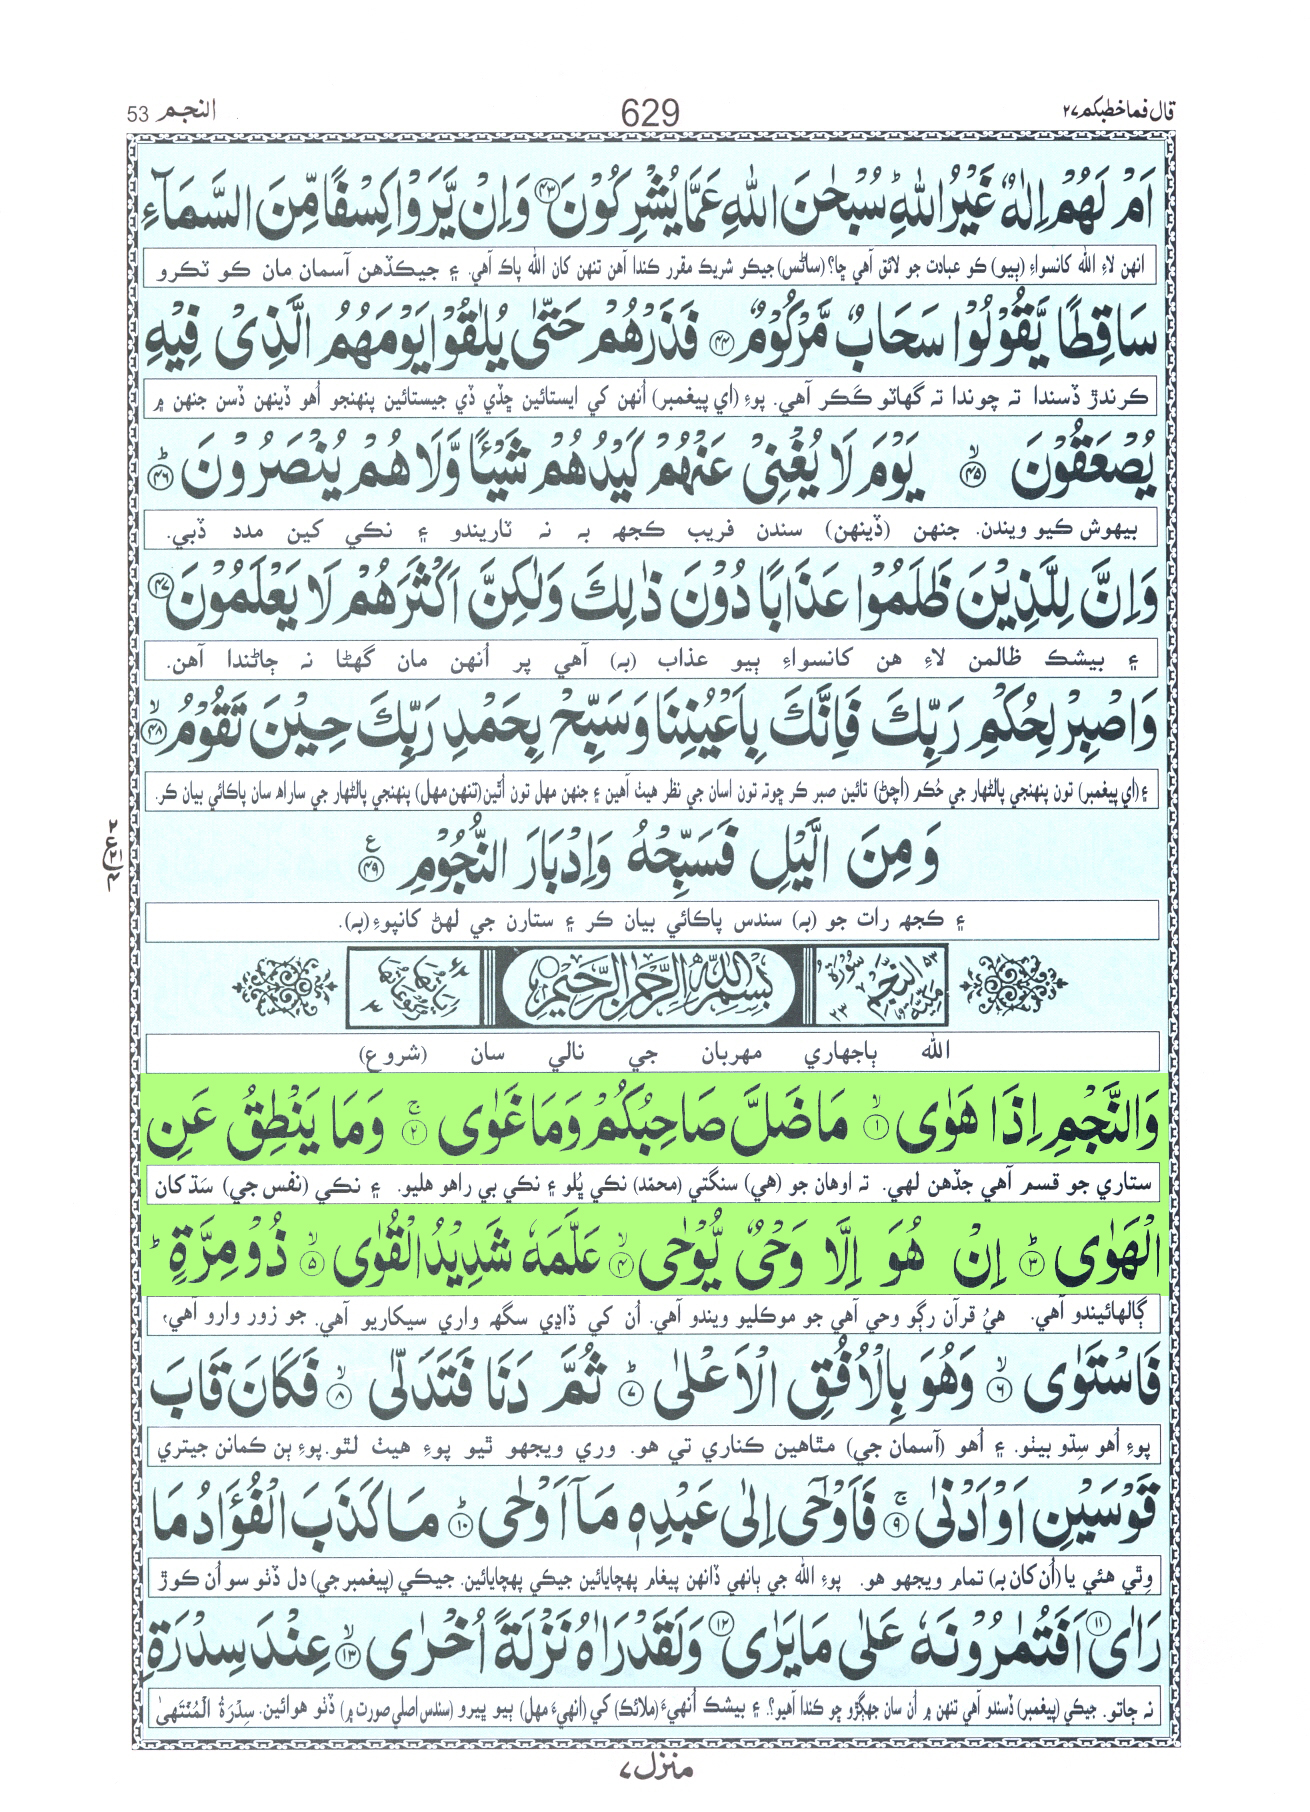 قال فما خطبكم ٢٧
629
النجم 53
اَمْ لَهُمْ اِلٰهٌ غَيْرُ اللّٰهِ ؕ سُبْحٰنَ اللّٰهِ عَمَّا يُشْرِكُوْنَ ﴿٤٣﴾ وَاِنْ يَّرَوْا كِسْفًا مِّنَ السَّمَآءِ
انهن لاءِ الله کانسواءِ (ٻيو) ڪو عبادت جو لائق آهي ڇا؟ (ساڻس) جيڪو شريڪ مقرر ڪندا آهن تنهن کان الله پاڪ آهي. ۽ جيڪڏهن آسمان مان ڪو ٽڪرو
سَاقِطًا يَّقُوْلُوْا سَحَابٌ مَّرْكُوْمٌ ﴿٤٤﴾ فَذَرْهُمْ حَتّٰى يُلٰقُوْا يَوْمَهُمُ الَّذِىْ فِيْهِ
ڪرندڙ ڏسندا ته چوندا ته گهاٽو ڪَڪر آهي. پوءِ (اي پيغمبر) اُنهن کي ايستائين ڇڏي ڏي جيستائين پنهنجو اُهو ڏينهن ڏسن جنهن ۾
يُصْعَقُوْنَ ﴿٤٥﴾ۙ يَوْمَ لَا يُغْنِىْ عَنْهُمْ كَيْدُهُمْ شَيْـًٔا وَّلَا هُمْ يُنْصَرُوْنَ ﴿٤٦﴾ؕ
بيهوش ڪيو ويندن. جنهن (ڏينهن) سندن فريب ڪجهه به نه ٽاريندو ۽ نڪي کين مدد ڏبي.
وَاِنَّ لِلَّذِيْنَ ظَلَمُوْا عَذَابًا دُوْنَ ذٰلِكَ وَلٰكِنَّ اَكْثَرَهُمْ لَا يَعْلَمُوْنَ ﴿٤٧﴾
۽ بيشڪ ظالمن لاءِ هن کانسواءِ ٻيو عذاب (به) آهي پر اُنهن مان گهڻا نه ڄاڻندا آهن.
وَاصْبِرْ لِحُكْمِ رَبِّكَ فَاِنَّكَ بِاَعْيُنِنَا وَسَبِّحْ بِحَمْدِ رَبِّكَ حِيْنَ تَقُوْمُ ﴿٤٨﴾ۙ
۽ (اي پيغمبر) تون پنهنجي پالڻهار جي حُڪم (اچڻ) تائين صبر ڪر ڇوته تون اسان جي نظر هيٺ آهين ۽ جنهن مهل تون اُٿين (تنهن مهل) پنهنجي پالڻهار جي ساراهه سان پاڪائي بيان ڪر.
وَمِنَ الَّيْلِ فَسَبِّحْهُ وَاِدْبَارَ النُّجُوْمِ ﴿٤٩﴾ع
۽ ڪجهه رات جو (به) سندس پاڪائي بيان ڪر ۽ ستارن جي لهڻ کانپوءِ (به).
٥٣ سُوْرَةُ النَّجْمِ مَكِّيَّةٌ ٢٣
بِسْمِ اللّٰهِ الرَّحْمٰنِ الرَّحِيْمِ
الله ٻاجهاري مهربان جي نالي سان (شروع)
وَالنَّجْمِ اِذَا هَوٰى ﴿١﴾ۙ مَا ضَلَّ صَاحِبُكُمْ وَمَا غَوٰى ﴿٢﴾ۚ وَمَا يَنْطِقُ عَنِ
ستاري جو قسم آهي جڏهن لهي. ته اوهان جو (هي) سنگتي (محمّد) نڪي ڀُلو ۽ نڪي بي راهو هليو. ۽ نڪي (نفس جي) سَڌ کان
الْهَوٰى ﴿٣﴾ؕ اِنْ هُوَ اِلَّا وَحْىٌ يُّوْحٰى ﴿٤﴾ۙ عَلَّمَهٗ شَدِيْدُ الْقُوٰى ﴿٥﴾ۙ ذُوْ مِرَّةٍ ؕ
ڳالهائيندو آهي. هيُ قرآن رڳو وحي آهي جو موڪليو ويندو آهي. اُن کي ڏاڍي سگهه واري سيکاريو آهي. جو زور وارو آهي،
فَاسْتَوٰى ﴿٦﴾ۙ وَهُوَ بِالْاُفُقِ الْاَعْلٰى ﴿٧﴾ؕ ثُمَّ دَنَا فَتَدَلّٰى ﴿٨﴾ۙ فَكَانَ قَابَ
پوءِ اُهو سِڌو بيٺو. ۽ اُهو (آسمان جي) مٿاهين ڪناري تي هو. وري ويجهو ٿيو پوءِ هيٺ لٿو. پوءِ ٻن ڪمانن جيتري
قَوْسَيْنِ اَوْ اَدْنٰى ﴿٩﴾ۚ فَاَوْحٰٓى اِلٰى عَبْدِهٖ مَآ اَوْحٰى ﴿١٠﴾ؕ مَا كَذَبَ الْفُؤَادُ مَا
وِٿي هئي يا (اُن کان به) تمام ويجهو هو. پوءِ الله جي ٻانهي ڏانهن پيغام پهچايائين جيڪي پهچايائين. جيڪي (پيغمبر جي) دل ڏٺو سو اُن ڪوڙ
رَاٰى ﴿١١﴾ اَفَتُمٰرُوْنَهٗ عَلٰى مَا يَرٰى ﴿١٢﴾ وَلَقَدْ رَاٰهُ نَزْلَةً اُخْرٰى ﴿١٣﴾ۙ عِنْدَ سِدْرَةِ
نه ڄاتو. جيڪي (پيغمبر) ڏسندو آهي تنهن ۾ اُن سان جهڳڙو ڇو ڪندا آهيو؟. ۽ بيشڪ اُنهيءَ (ملائڪ) کي (انهيءَ مهل) ٻيو ڀيرو (سندس اصلي صورت ۾) ڏٺو هوائين. سِدْرَةُ الْمُنْتَهىٰ
منزل ٧